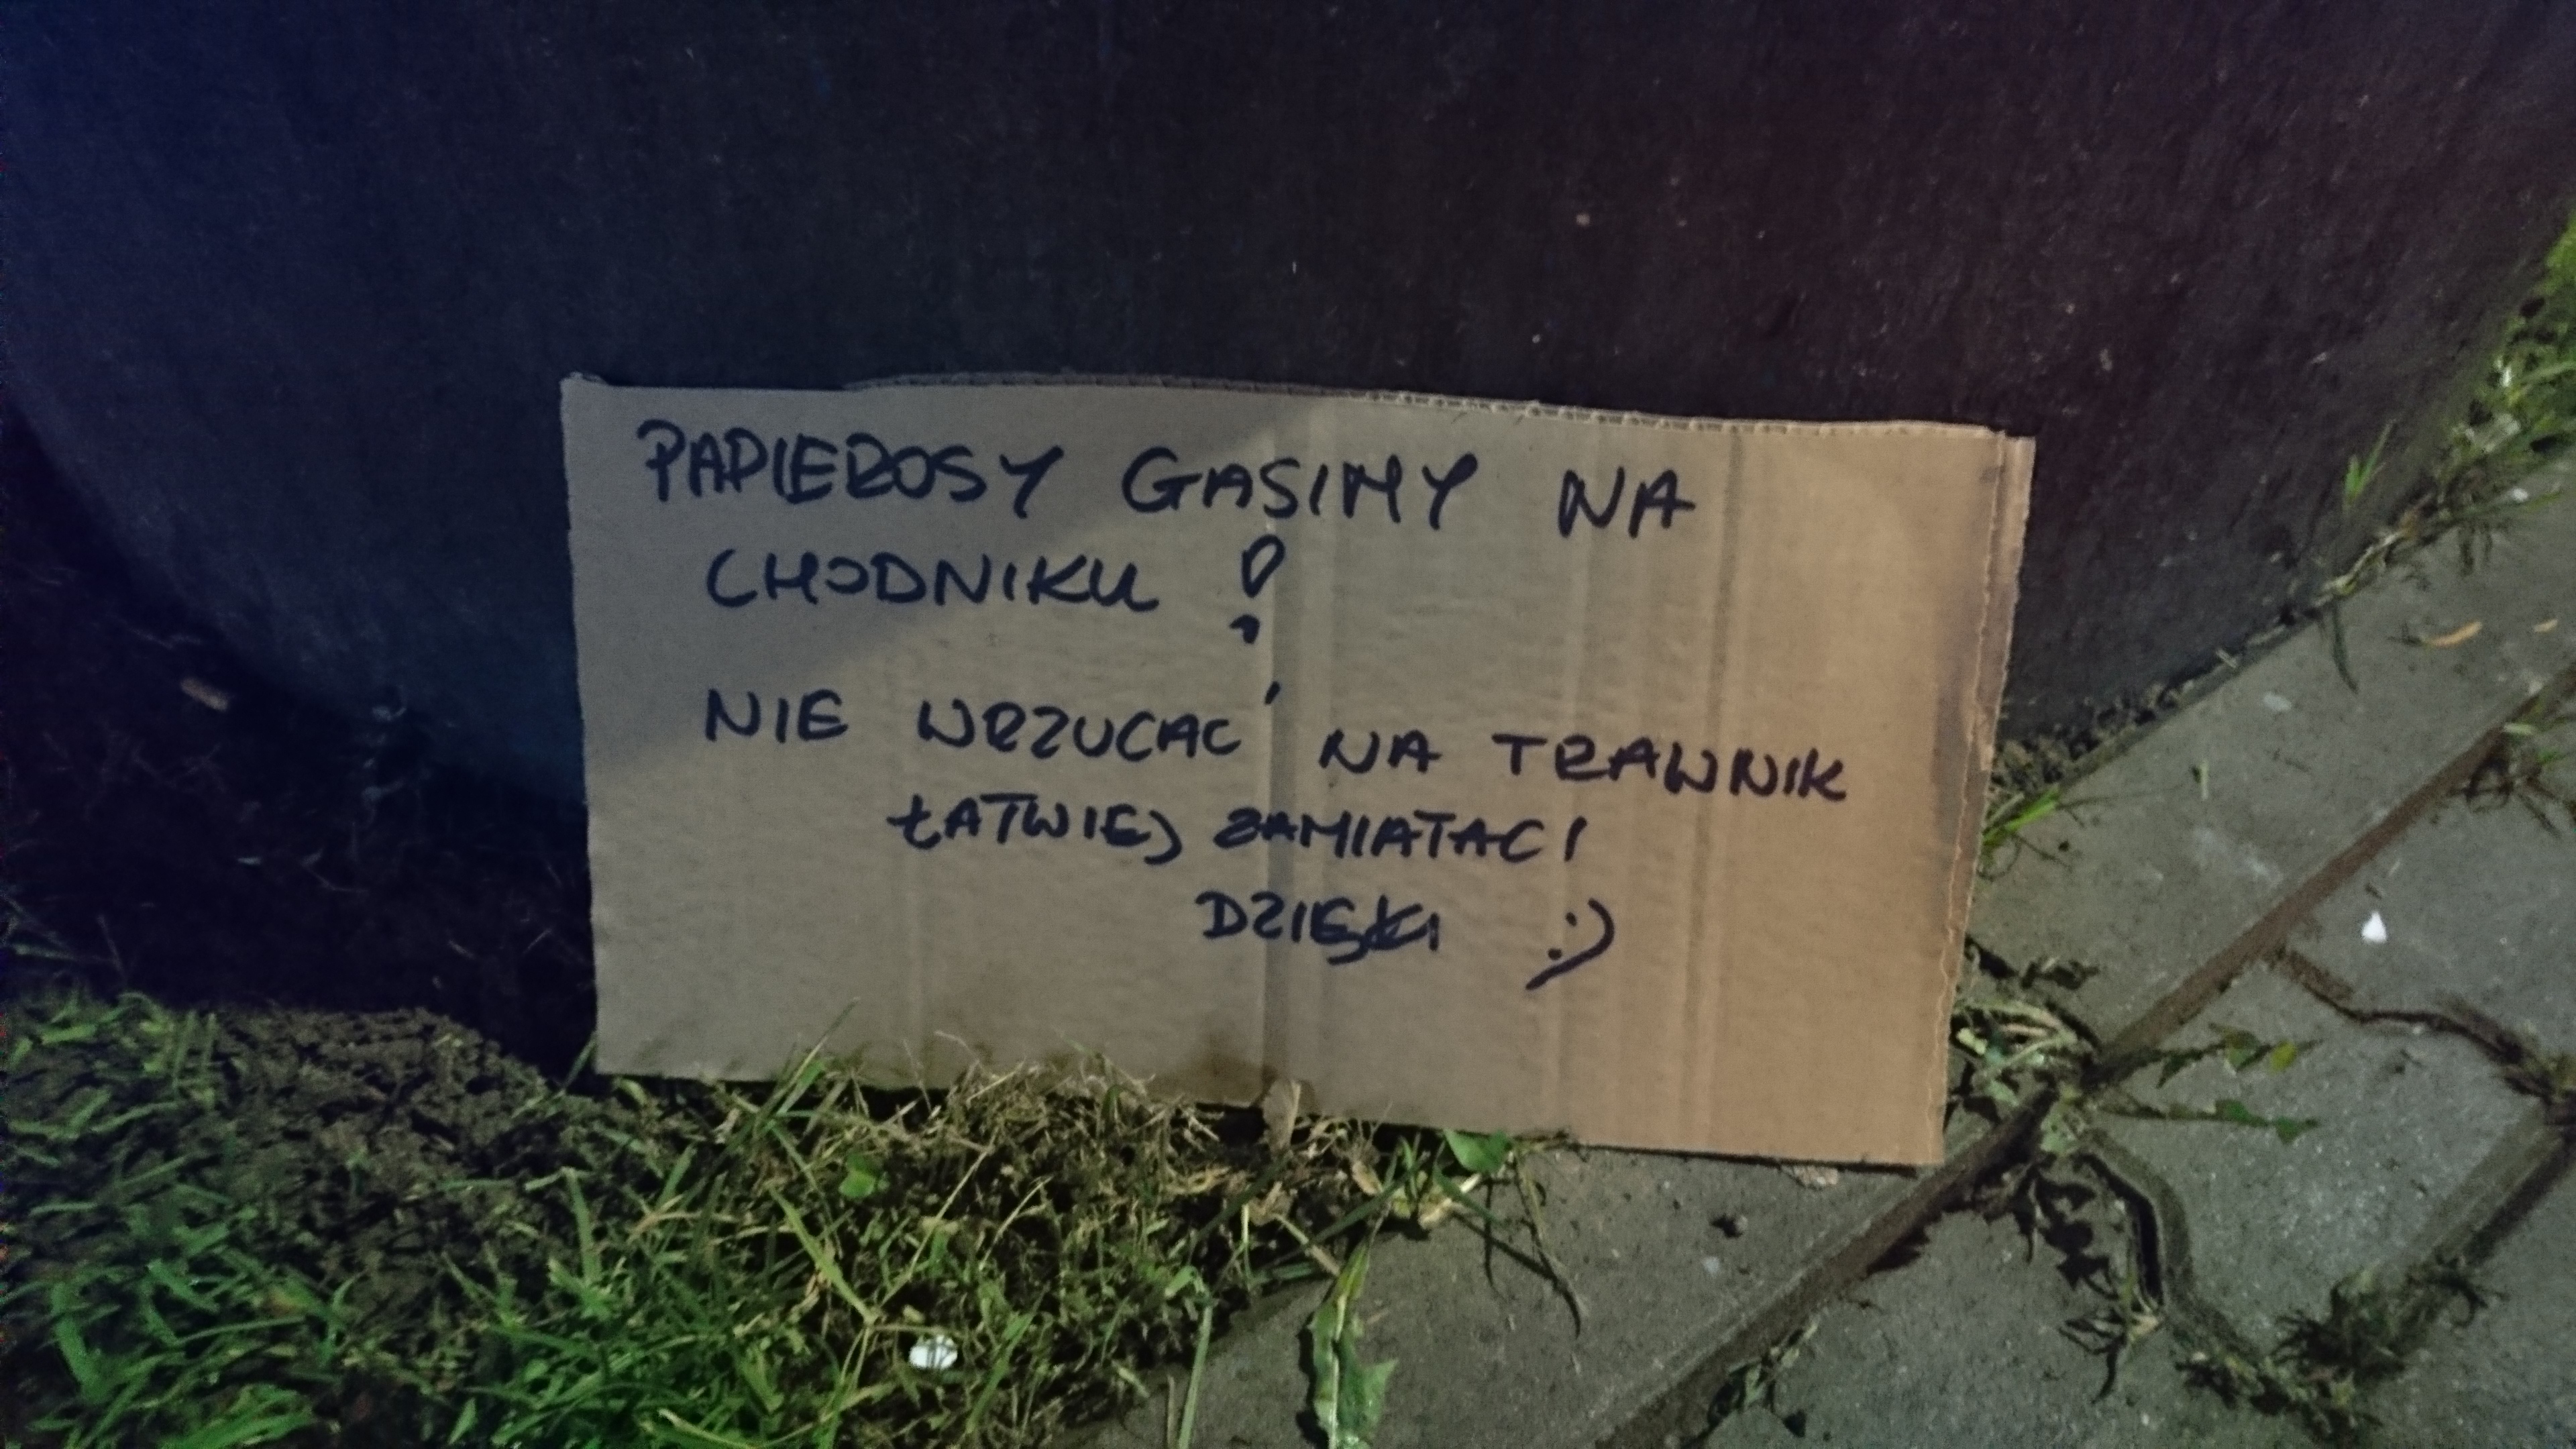 PAPIEROSY GASIMY NA
CHODNIKU !
NIE WRZUCAĆ NA TRAWNIK
ŁATWIEJ ZAMIATAĆ!
DZIĘKI :)